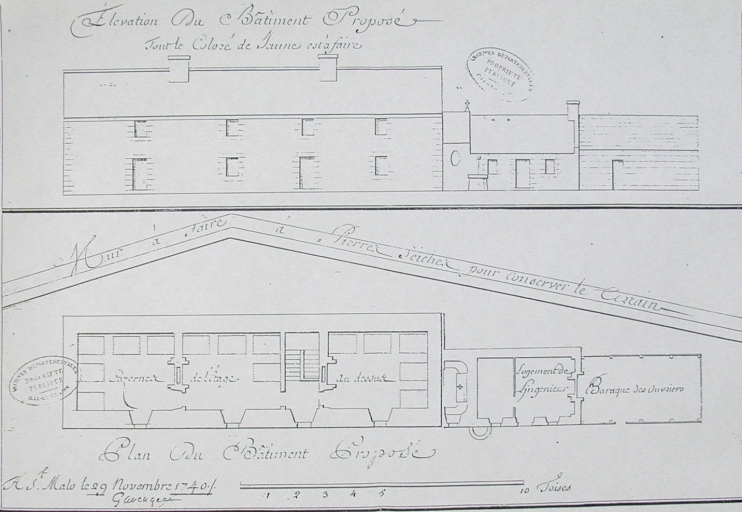 Élevation Du Bâtiment Proposé
Tout le Coloré de Jaune est à faire
ARCHIVES DÉPARTEMENTALES
PROPRIÉTÉ
PUBLIQUE
Mur à faire à Pierres Seiches pour Conserver le Terrain
ARCHIVES DÉPARTEMENTALES
PROPRIÉTÉ
PUBLIQUE
Cazernes de l'étage au dessus
Logement de
l'Ingenieur
Baraque des Ouvriers
Plan Du Bâtiment Proposé
A St. Malo le 29 Novembre 1740
1 2 3 4 5 10 Toises